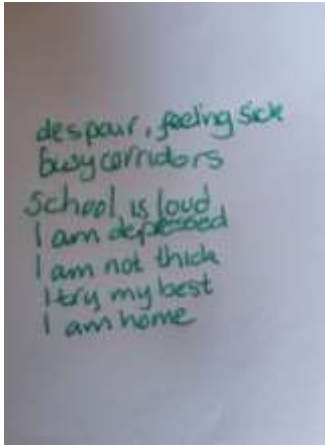 despair, feeling sick
busy corridors
School is loud
I am depressed
I am not thick
I try my best
I am home